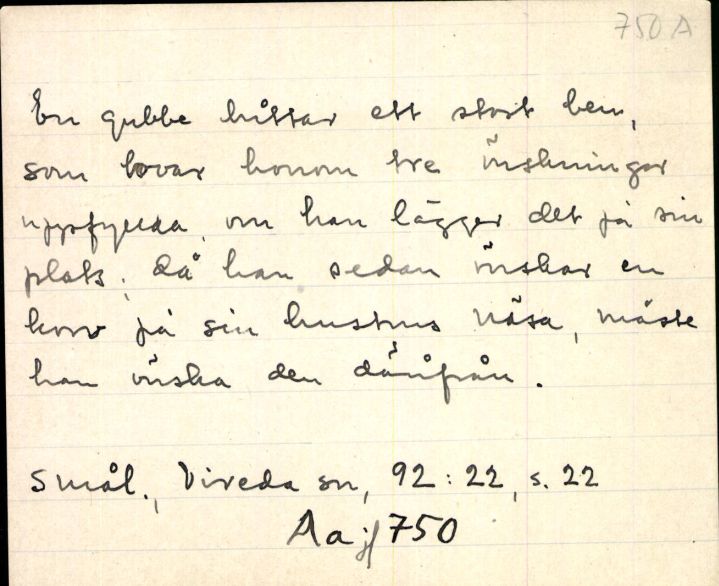 750 A
En gubbe hittar ett stort ben,
som lovar honom tre önskningar
uppfyllda, om han lägger det på sin
plats. Då han sedan önskar en
korv på sin hustrus näsa, måste
han önska den därifrån.
Smål., Vireda sn, 92:22, s. 22
Aa jf 750